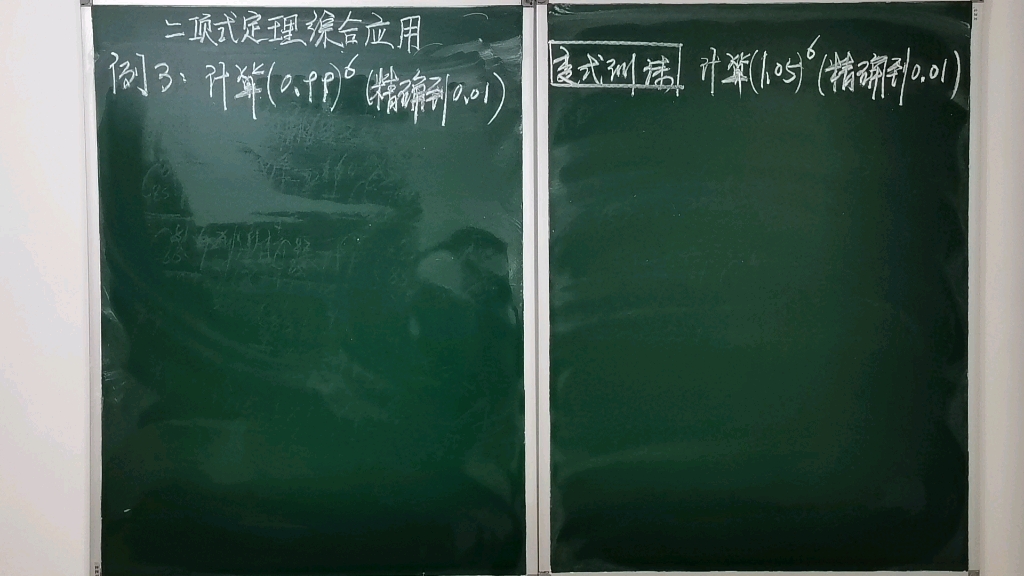 二项式定理综合应用
例3: 计算(0.99)⁶(精确到0.01)
变式训练 计算(1.05)⁶(精确到0.01)